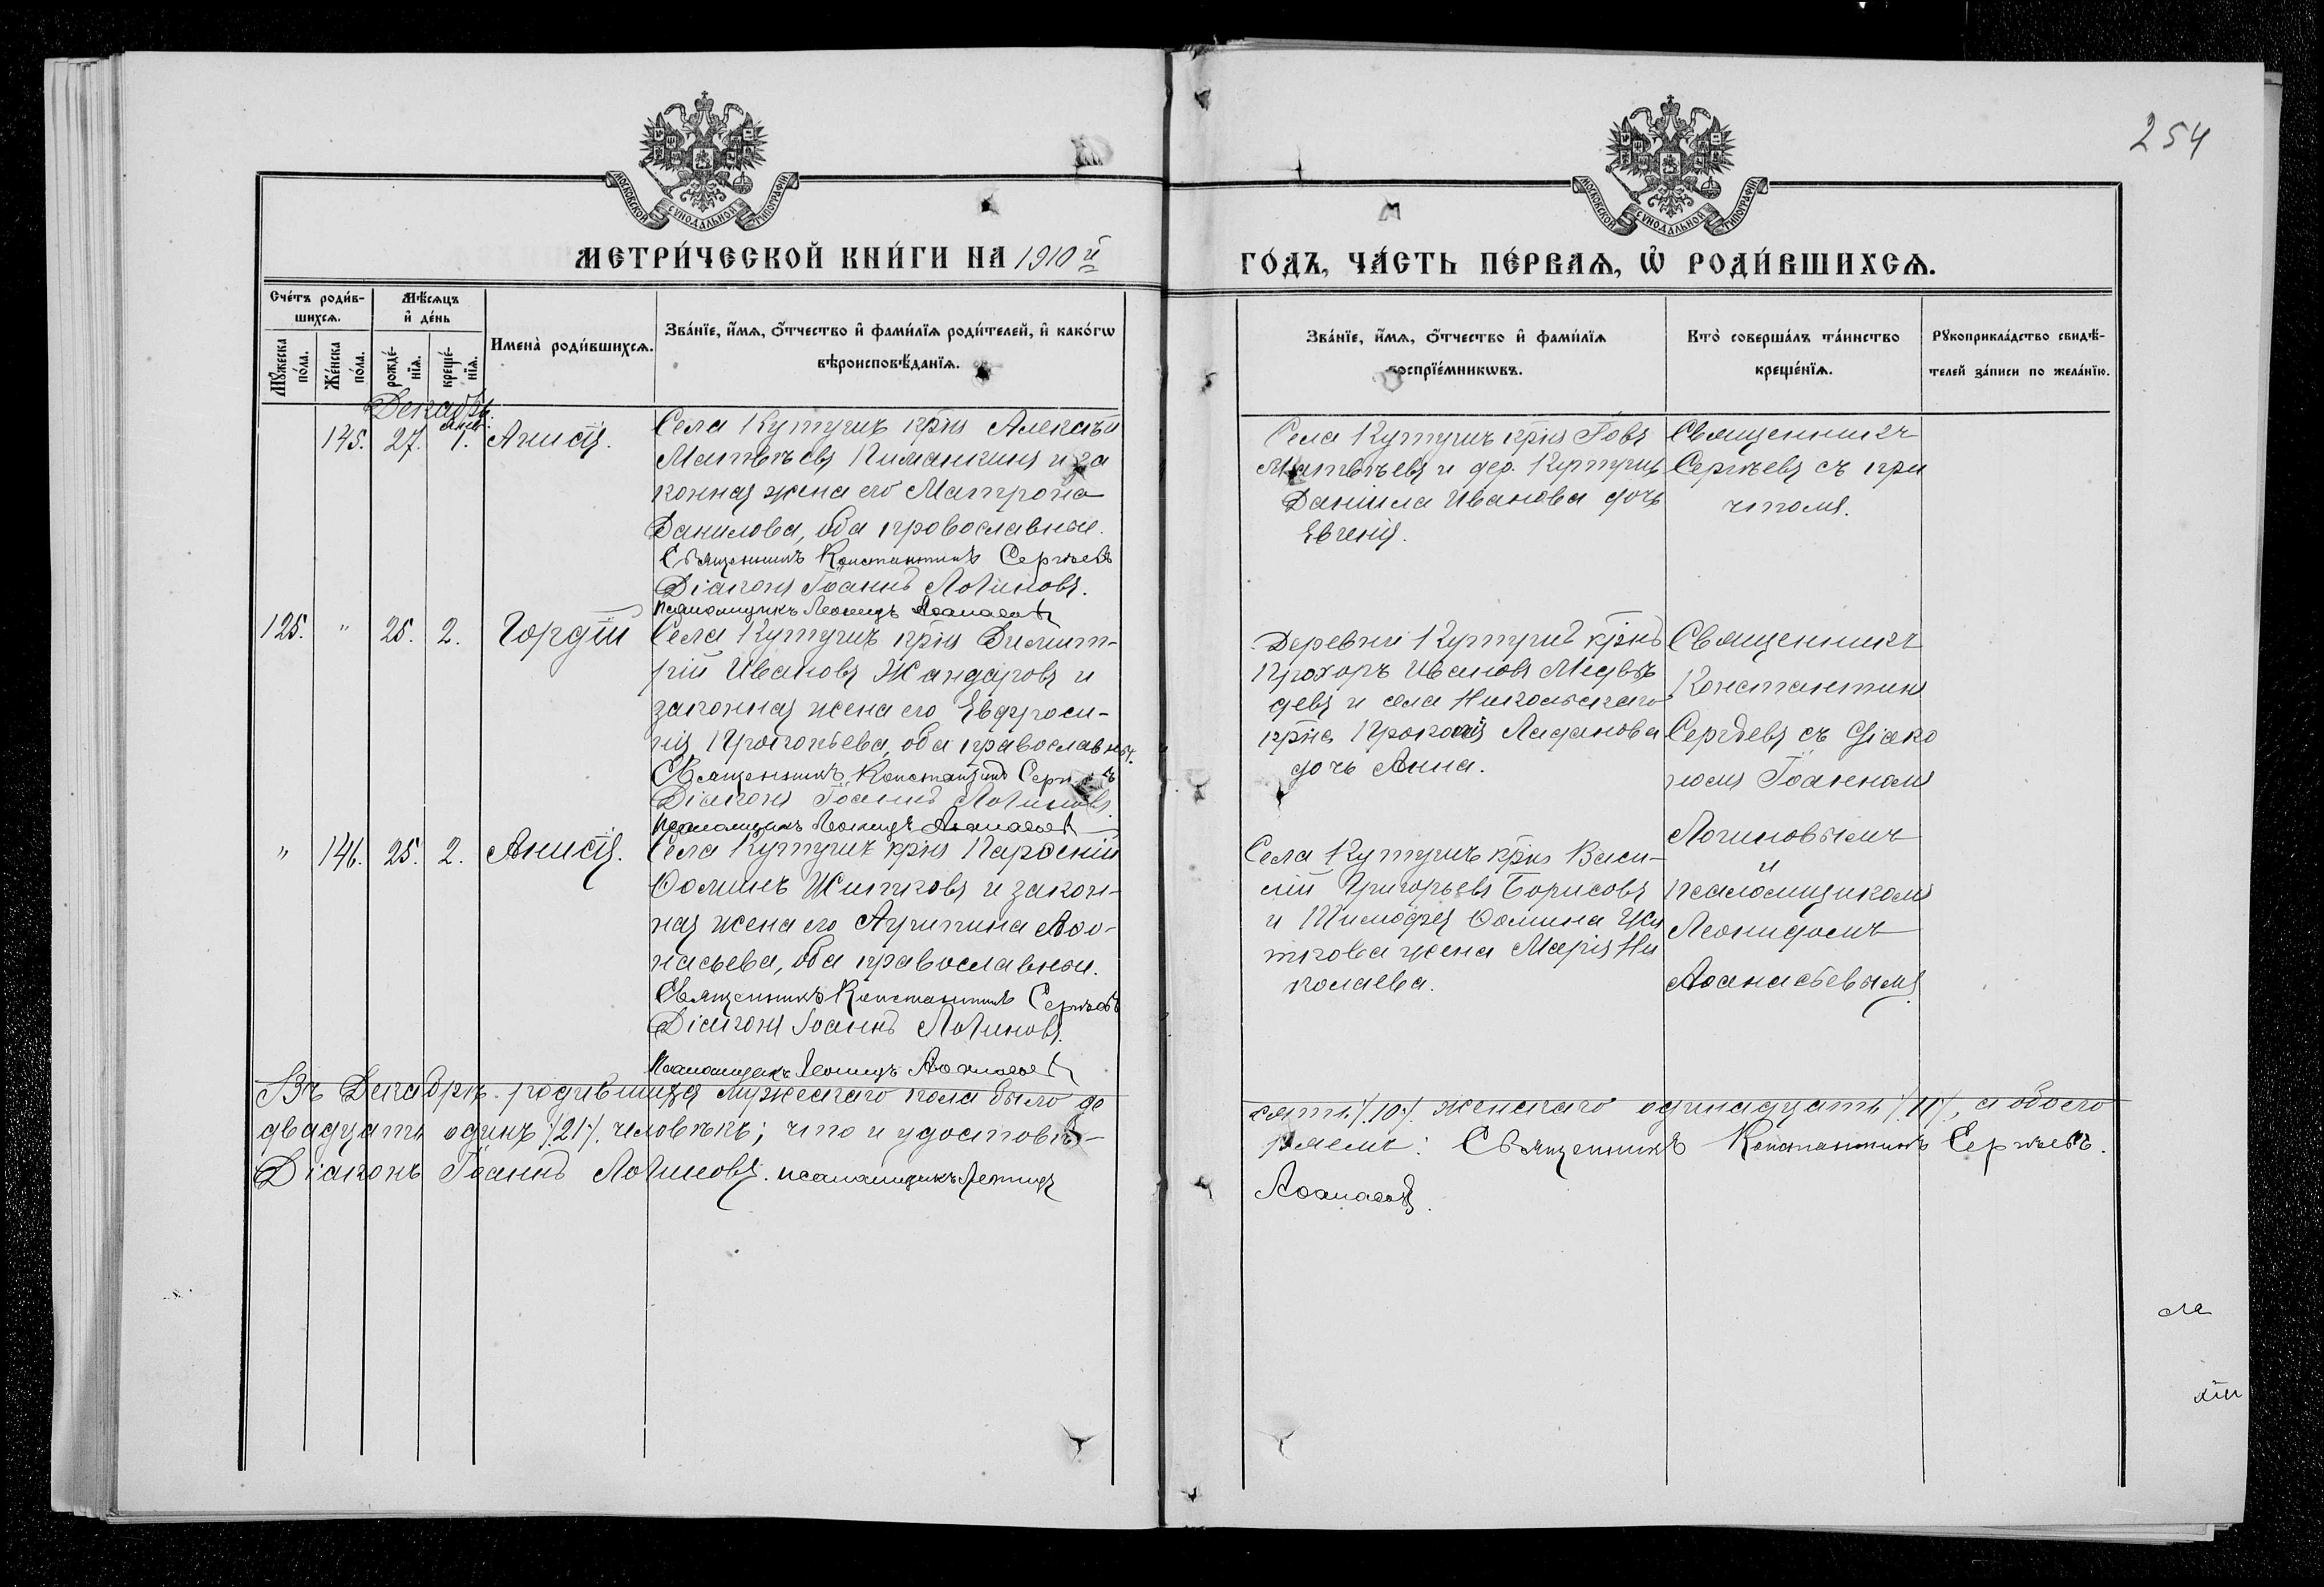 254
МОСКОВСКОЙ СУНОДАЛЬНОЙ ТИПОГРАФІИ
МОСКОВСКОЙ СУНОДАЛЬНОЙ ТИПОГРАФІИ
МЕТРИ́ЧЕСКОЙ КНИ́ГИ НА 1910 й
ГО́ДЪ, ЧА́СТЬ ПЕ́РВАѦ, Ѡ҆ РОДИ́ВШИХСѦ.
Сче́тъ роди́в-
шихсѧ.
Мѣ́сѧцъ
и҆ де́нь
Мꙋ́жеска
по́ла.
Же́нска
по́ла.
рожде́-
нїѧ.
креще́-
нїѧ.
Имена̀ роди́вшихсѧ.
Зва́нїе, и҆́мѧ, ѻ҆́тчество и҆ фами́лїѧ роди́телей, и҆ како́гѡ
вѣроисповѣ́данїѧ.
Зва́нїе, и҆́мѧ, ѻ҆́тчество и҆ фами́лїѧ
воспрїе́мникѡвъ.
Кто̀ соверша́лъ та́инство
креще́нїѧ.
Рꙋкоприкла́дство свидѣ́-
телей за́писи по жела́нїю.
Декабрь.
145. 27. 1. Анисія.
Села Кутушъ крнъ Алексѣй
Матвѣевъ Пиманкинъ и за
конная жена его Матрона
Данилова, оба провославные.
Священникъ Константинъ Сергѣевъ
Діаконъ Іоаннъ Логиновъ.
Псаломщикъ Леонидъ Аѳанасьев
Матвѣевъ и дер.
Даніила Иванова дочь
Евгенія.
Священникъ
Сергѣевъ съ при
чтомъ.
125. " 25. 2. Гордій
крнъ Димит-
рій Ивановъ Жандаровъ и
законная жена его Евфроси-
нія Прокопьева, оба православные.
Священникъ Константинъ
Діаконъ Іоаннъ Логиновъ
Псаломщикъ Леонидъ Аѳанасьев
Деревни
Прохоръ Ивановъ Медвѣ
девъ и села Никольскаго
крна Прокопія Ладанова
дочь Анна.
Священникъ
Константинъ
Сергѣевъ съ діако
номъ Іоанномъ
Логиновымъ
и
псаломщикомъ
Леонидомъ
Аѳанасьевымъ
" 146. 25. 2. Анисія.
крнъ Парѳеній
Ѳоминъ Житковъ и закон-
ная жена его Агрипина Аѳо-
насьева, оба православные.
Священникъ Константинъ Сергѣевъ
Діаконъ Іоаннъ Логиновъ.
Псаломщикъ Леонидъ Аѳанасьев
крнъ Васи-
лій Григорьевъ Борисовъ
и Тимофея Ѳомина Жи
ткова жена Марія Ни
колаева.
Въ Декабрѣ родившихся мужескаго пола было де
сять /10/ женскаго одинадцать /11/, а обоего
двадцать одинъ /21/. человѣкъ; что и удостовѣ-
ряемъ: Священникъ Константинъ Сергѣевъ.
Діаконъ Іоаннъ Логиновъ. псаломщикъ Леонидъ
Аѳанасьев.